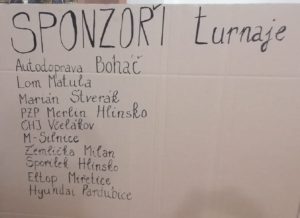 SPONZOŘI turnaje
Autodoprava Boháč
Lom Matula
Marián Stverák
PZP Merlin Hlinsko
CHJ Včelákov
M-Silnice
Zemlička Milan
Sportlek Hlinsko
Eltop Miřetice
Hyundai Pardubice